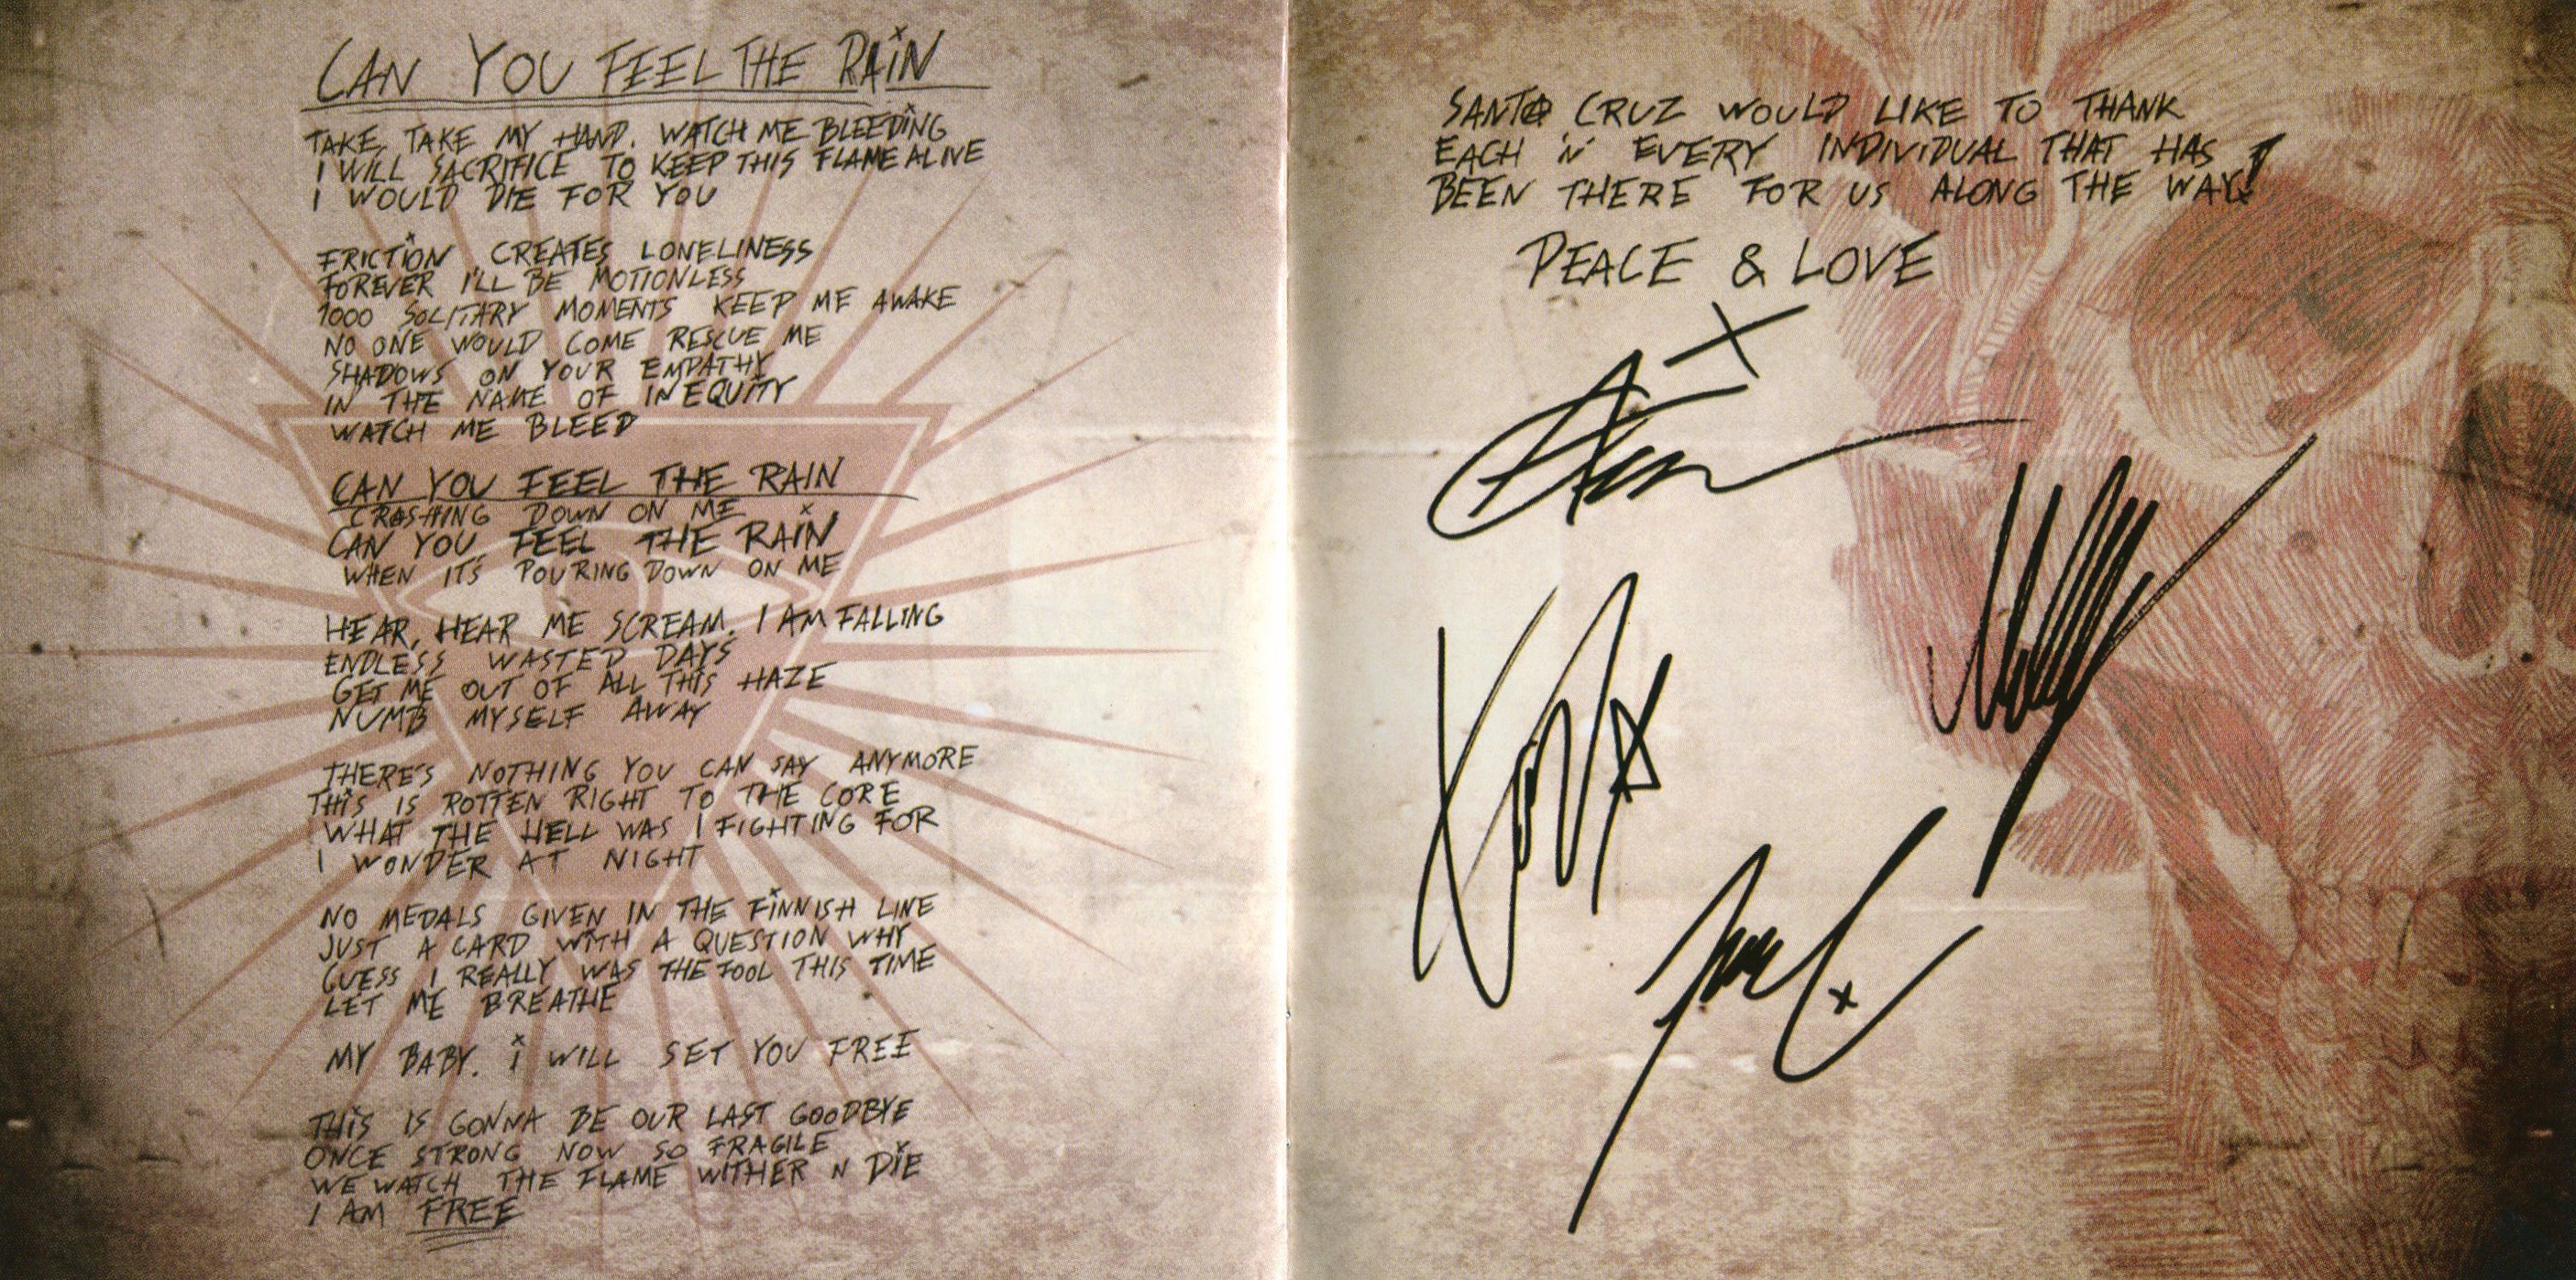 CAN YOU FEEL THE RAIN
TAKE, TAKE MY HAND. WATCH ME BLEEDING
I WILL SACRIFICE TO KEEP THIS FLAME ALIVE
I WOULD DIE FOR YOU
FRICTION CREATES LONELINESS
FOREVER I'LL BE MOTIONLESS
1000 SOLITARY MOMENTS KEEP ME AWAKE
NO ONE WOULD COME RESCUE ME
SHADOWS ON YOUR EMPATHY
IN THE NAME OF INEQUITY
WATCH ME BLEED
CAN YOU FEEL THE RAIN
CRASHING DOWN ON ME
CAN YOU FEEL THE RAIN
WHEN ITS POURING DOWN ON ME
HEAR, HEAR ME SCREAM. I AM FALLING
ENDLESS WASTED DAYS
GET ME OUT OF ALL THIS HAZE
NUMB MYSELF AWAY
THERE'S NOTHING YOU CAN SAY ANYMORE
THIS IS ROTTEN RIGHT TO THE CORE
WHAT THE HELL WAS I FIGHTING FOR
I WONDER AT NIGHT
NO MEDALS GIVEN IN THE FINNISH LINE
JUST A CARD WITH A QUESTION WHY
GUESS I REALLY WAS THE FOOL THIS TIME
LET ME BREATHE
MY BABY. I WILL SET YOU FREE
THIS IS GONNA BE OUR LAST GOODBYE
ONCE STRONG NOW SO FRAGILE
WE WATCH THE FLAME WITHER N DIE
I AM FREE
SANTA CRUZ WOULD LIKE TO THANK
EACH 'N' EVERY INDIVIDUAL THAT HAS
BEEN THERE FOR US ALONG THE WAY!
PEACE & LOVE